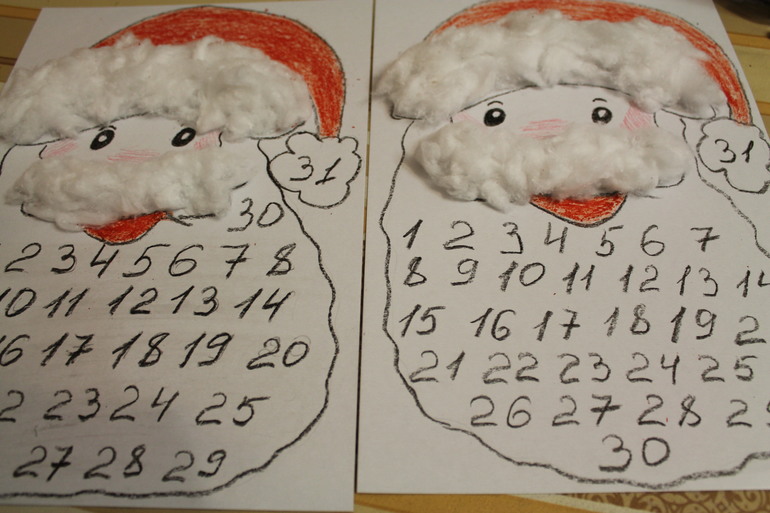 31
30
2 3 4 5 6 7 8
10 11 12 13 14
16 17 18 19 20
2 23 24 25
27 28 29
31
1 2 3 4 5 6 7
8 9 10 11 12 13 14
15 16 17 18 19 2
21 22 23 24 25
26 27 28 29
30